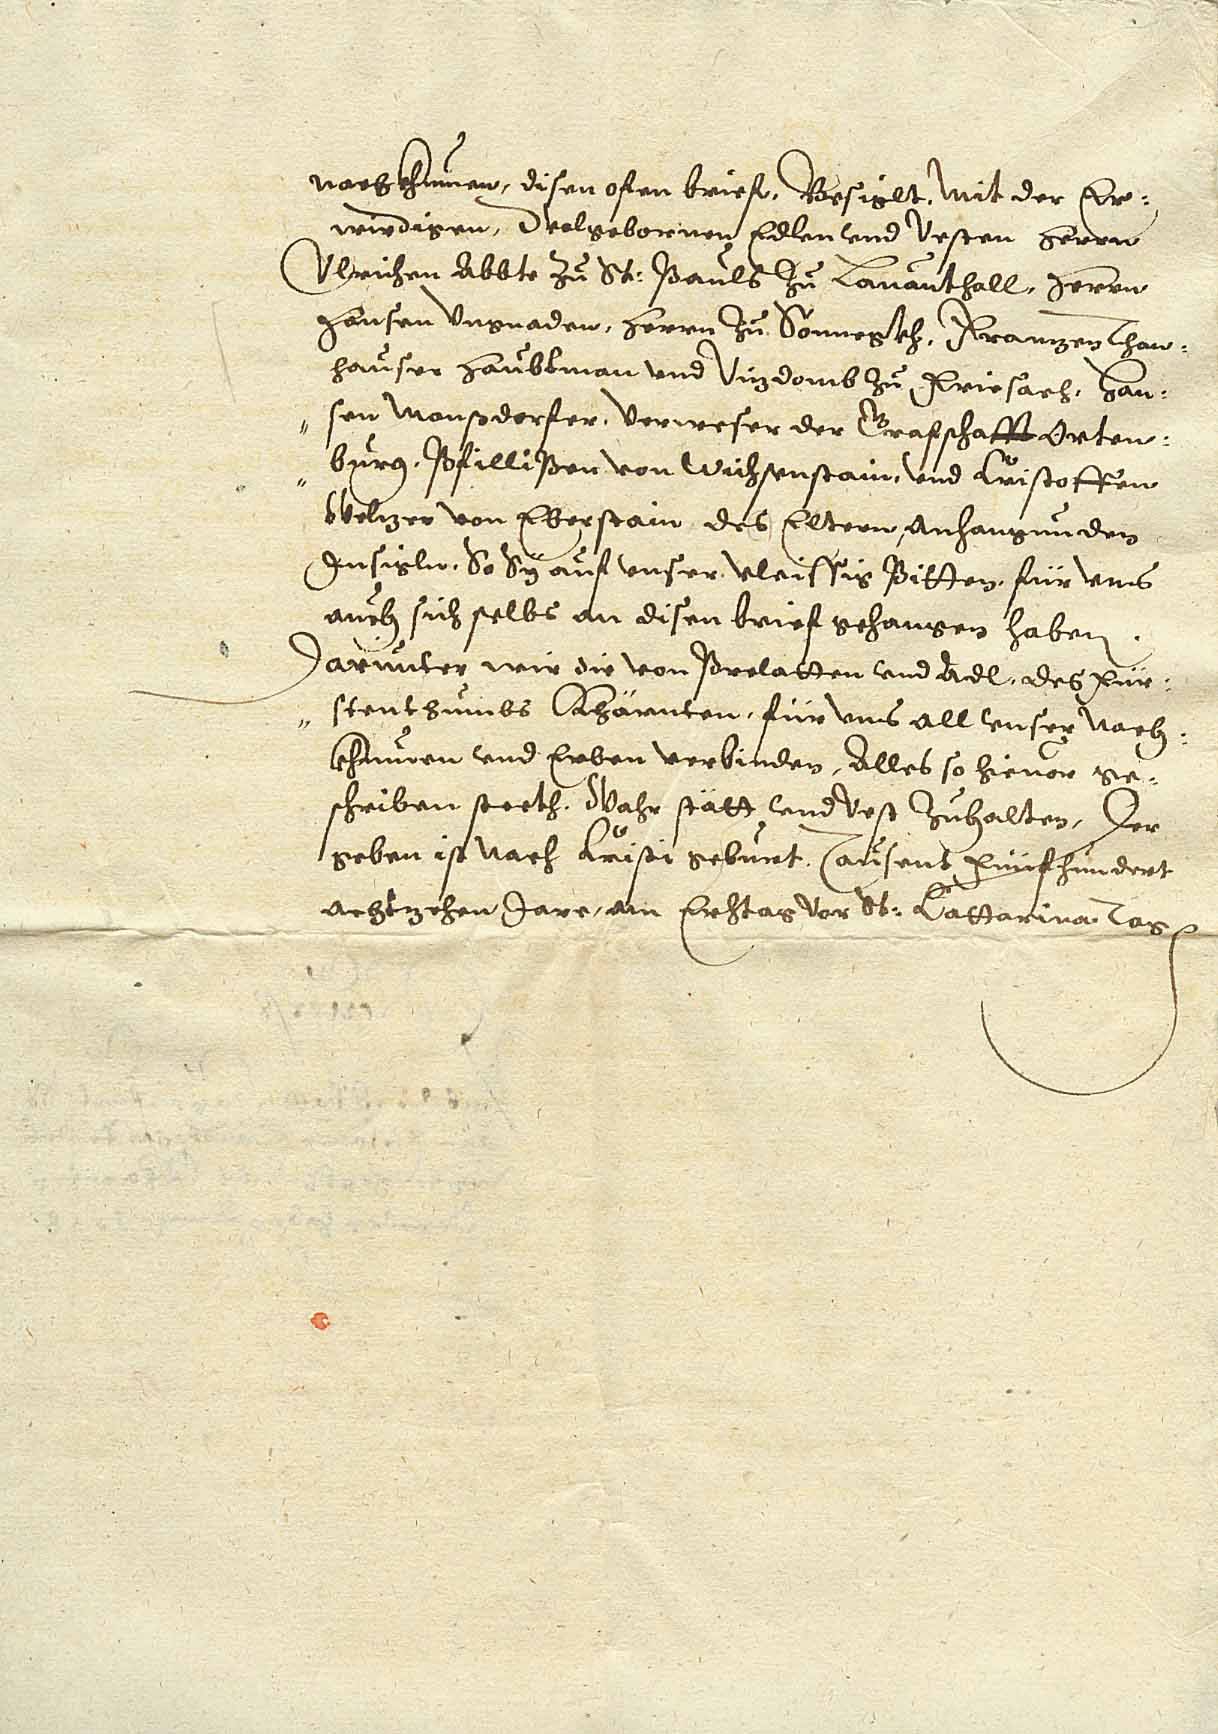 nachkhumen, disen ofen brieff, Besiglt, Mit der Er=
wirdigen, Wolgebornen Edlen vnd Vesten herrn
Vlrichen Abbte zu St: Pauls Zu Lauanthall, herrn
Hansen Vngnaden, herrn Zu Sonnegkh, Franzen Than=
hauser Haubtman vnd Vizdomb Zu Friesach, Han=
" sen Mansdorfer, Verweser der Grafschafft Orten=
" burg, Pfillippen von Wichsenstain, vnd Cristoffen
Welzer von Eberstain des Eltern, Anhangunden
Insigln, So Sy auf vnser vleissig Pitten, für vns
auch sich selbs an disen brief gehangen haben.
Darunter wir die von Prelatten vnd Adl, des Für=
" stenthumbs Khärnten, für vns all vnser Nach=
khumen vnd Erben verbinden, Alles so hieuor ge=
schriben steeth, Wahr stätt vnd Vest Zuhalten, Der
geben ist Nach Cristi geburt, Tausent Fünfhundert
achtzehen Jare, am Erchtag Vor St: Cattarina Tag